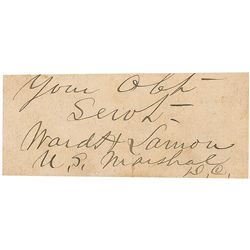 Your Obt
Servt
Ward H Lamon
U.S. Marshal
D.C.